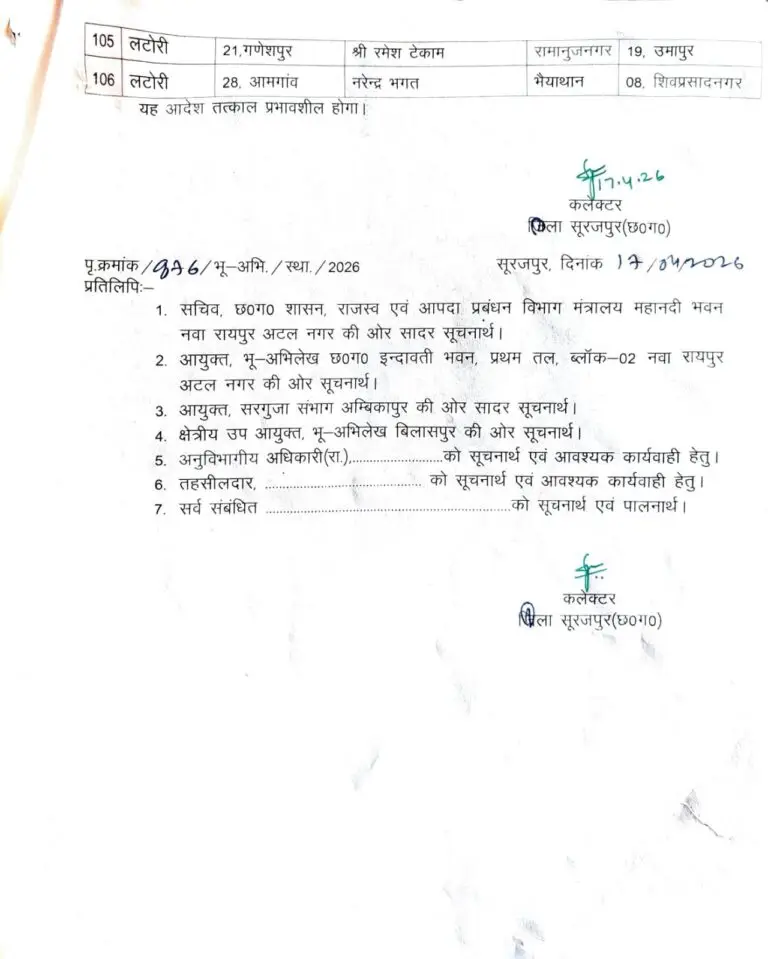 105 लटोरी 21,गणेशपुर श्री रमेश टेकाम रामानुजनगर 19, उमापुर
106 लटोरी 28, आमगांव नरेन्द्र भगत भैयाथान 08, शिवप्रसादनगर
यह आदेश तत्काल प्रभावशील होगा।
17.4.26
कलेक्टर
जिला सूरजपुर(छ0ग0)
पृ.क्रमांक/976/भू–अभि./स्था./2026 सूरजपुर, दिनांक 17/04/2026
प्रतिलिपिः–
1. सचिव, छ0ग0 शासन, राजस्व एवं आपदा प्रबंधन विभाग मंत्रालय महानदी भवन
नवा रायपुर अटल नगर की ओर सादर सूचनार्थ।
2. आयुक्त, भू–अभिलेख छ0ग0 इन्दावती भवन, प्रथम तल, ब्लॉक–02 नवा रायपुर
अटल नगर की ओर सूचनार्थ।
3. आयुक्त, सरगुजा संभाग अम्बिकापुर की ओर सादर सूचनार्थ।
4. क्षेत्रीय उप आयुक्त, भू–अभिलेख बिलासपुर की ओर सूचनार्थ।
5. अनुविभागीय अधिकारी(रा.),........................को सूचनार्थ एवं आवश्यक कार्यवाही हेतु।
6. तहसीलदार, ........................................ को सूचनार्थ एवं आवश्यक कार्यवाही हेतु।
7. सर्व संबंधित ..............................................................को सूचनार्थ एवं पालनार्थ।
कलेक्टर
जिला सूरजपुर(छ0ग0)